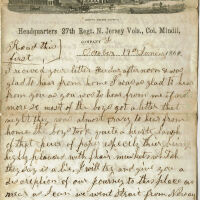 Headquarters 27th Regt. N. Jersey Vols., Col. Mindil,
COMPANY
October 19th
Read this
first
I received your letter Thursday afternoon & was
glad to hear from home I was as glad to hear
from you as you want to hear from me if not
more so most of the boys got a letter that
night they was almost crazy to hear from
home the boys took quite a hearty laugh
at that piece of paper especily their being
highly pleased with their
they say is a lie. I will try and give you a
discreption of our journey to this place as
near as I can we went strait from Newark